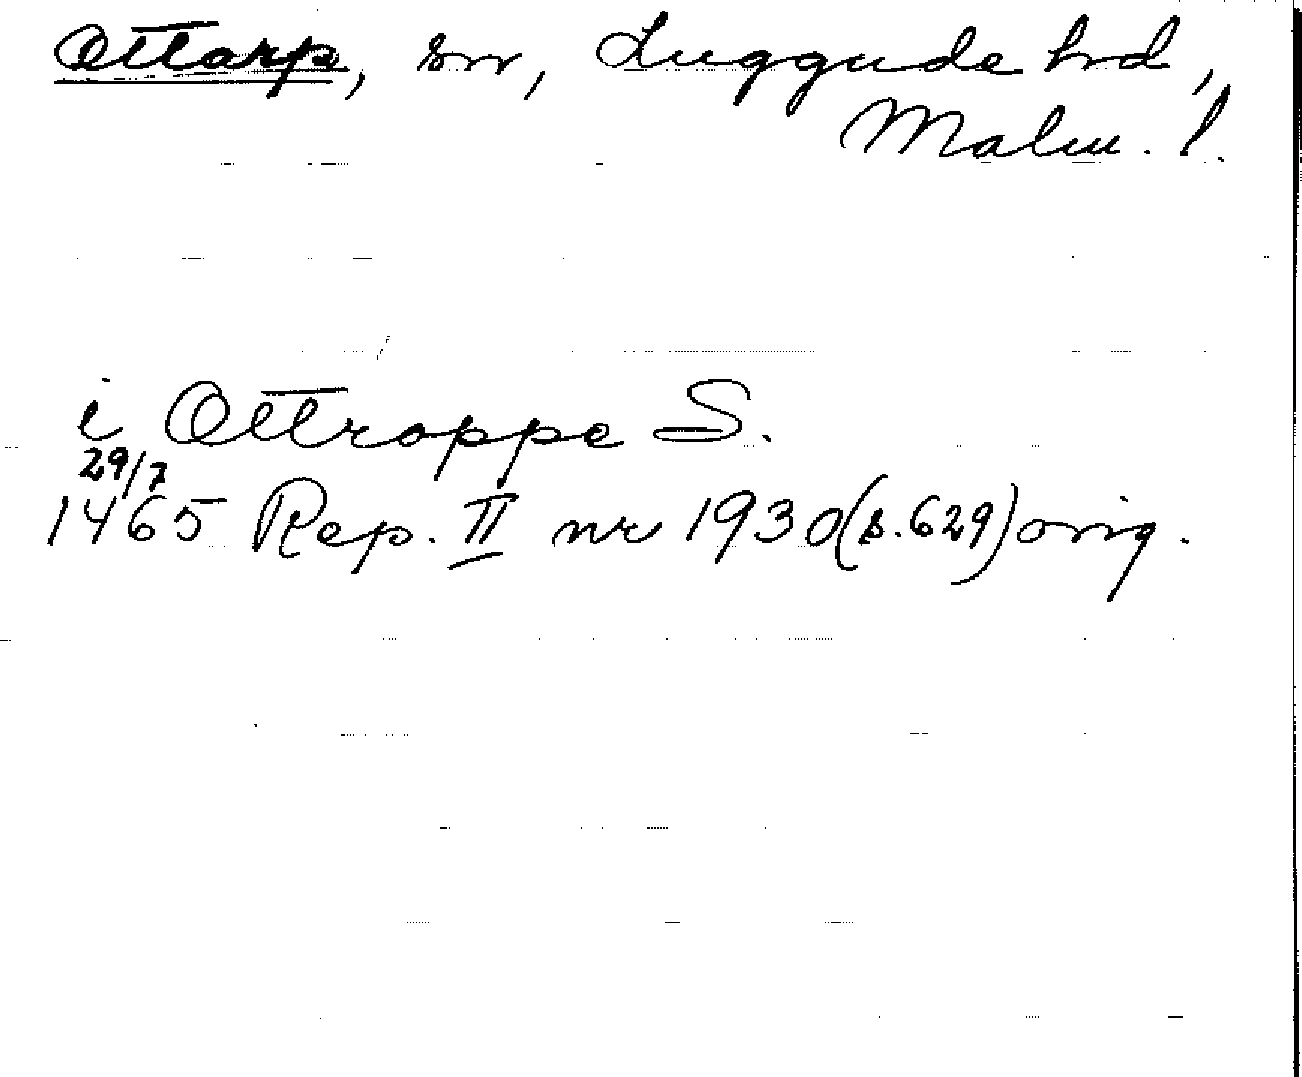 Ottarp, sn, Luggude hd,
Malm. l.
i Ottroppe S.
29/7
1465 Rep. II nr 1930 (s. 629) orig.